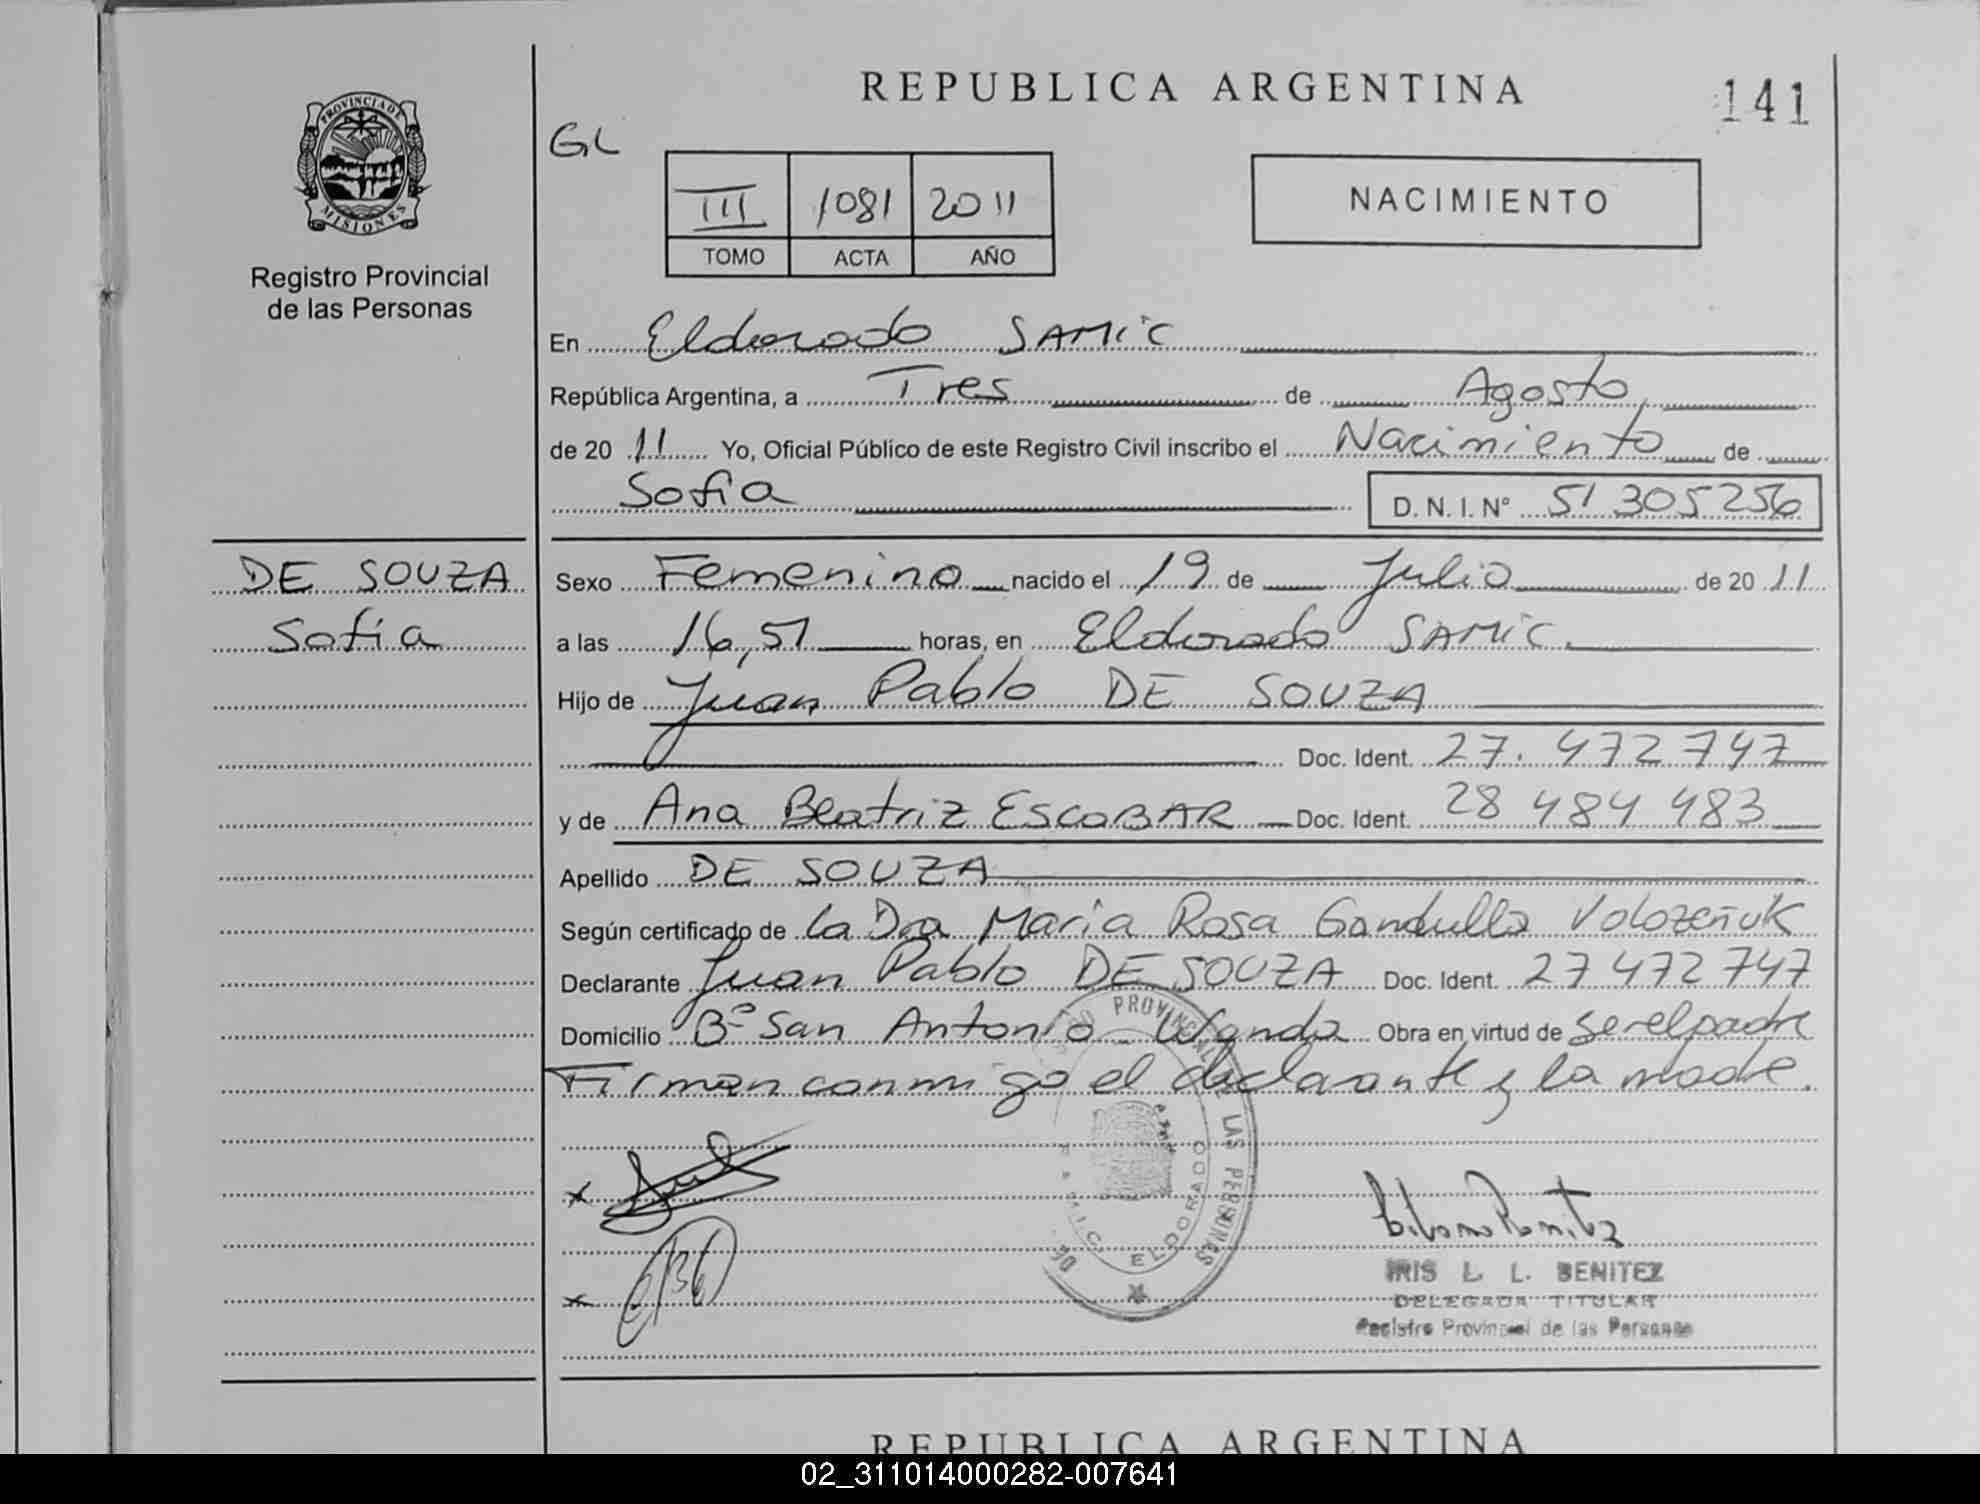 REPUBLICA ARGENTINA
141
GL
III 1081 2011
TOMO ACTA AÑO
NACIMIENTO
PROVINCIA DE MISIONES
Registro Provincial
de las Personas
En Eldorado SAMIC
República Argentina, a Tres de Agosto,
de 20 11 Yo, Oficial Público de este Registro Civil inscribo el Nacimiento de
Sofia D. N. I. Nº 51 305 256
DE SOUZA
Sofia
Sexo Femenino nacido el 19 de Julio de 20 11
a las 16,51 horas, en Eldorado SAMIC.
Hijo de Juan Pablo DE SOUZA
Doc. Ident. 27.472 747
y de Ana Beatriz ESCOBAR Doc. Ident. 28 484 483
Apellido DE SOUZA
Según certificado de La Dra Maria Rosa Gandulla Volozeñuk
Declarante Juan Pablo DE SOUZA Doc. Ident. 27 472 747
Domicilio Bº San Antonio - Wanda Obra en virtud de ser el padre
Firman conmigo el declarante y la madre.
PROVINCIAL DE LAS PERSONAS
ELDORADO
IRIS L. L. BENITEZ
DELEGADA TITULAR
Registro Provincial de las Personas
REPUBLICA ARGENTINA
02_311014000282-007641